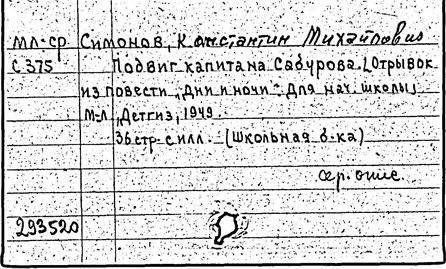 мл-ср Симонов, Константин Михайлович
С375 Подвиг капитана Сабурова. [Отрывок
из повести „Дни и ночи“. Для нач. школы]
М-Л, Детгиз, 1949.
36 стр. с илл. (Школьная б-ка)
сер. опис.
293520